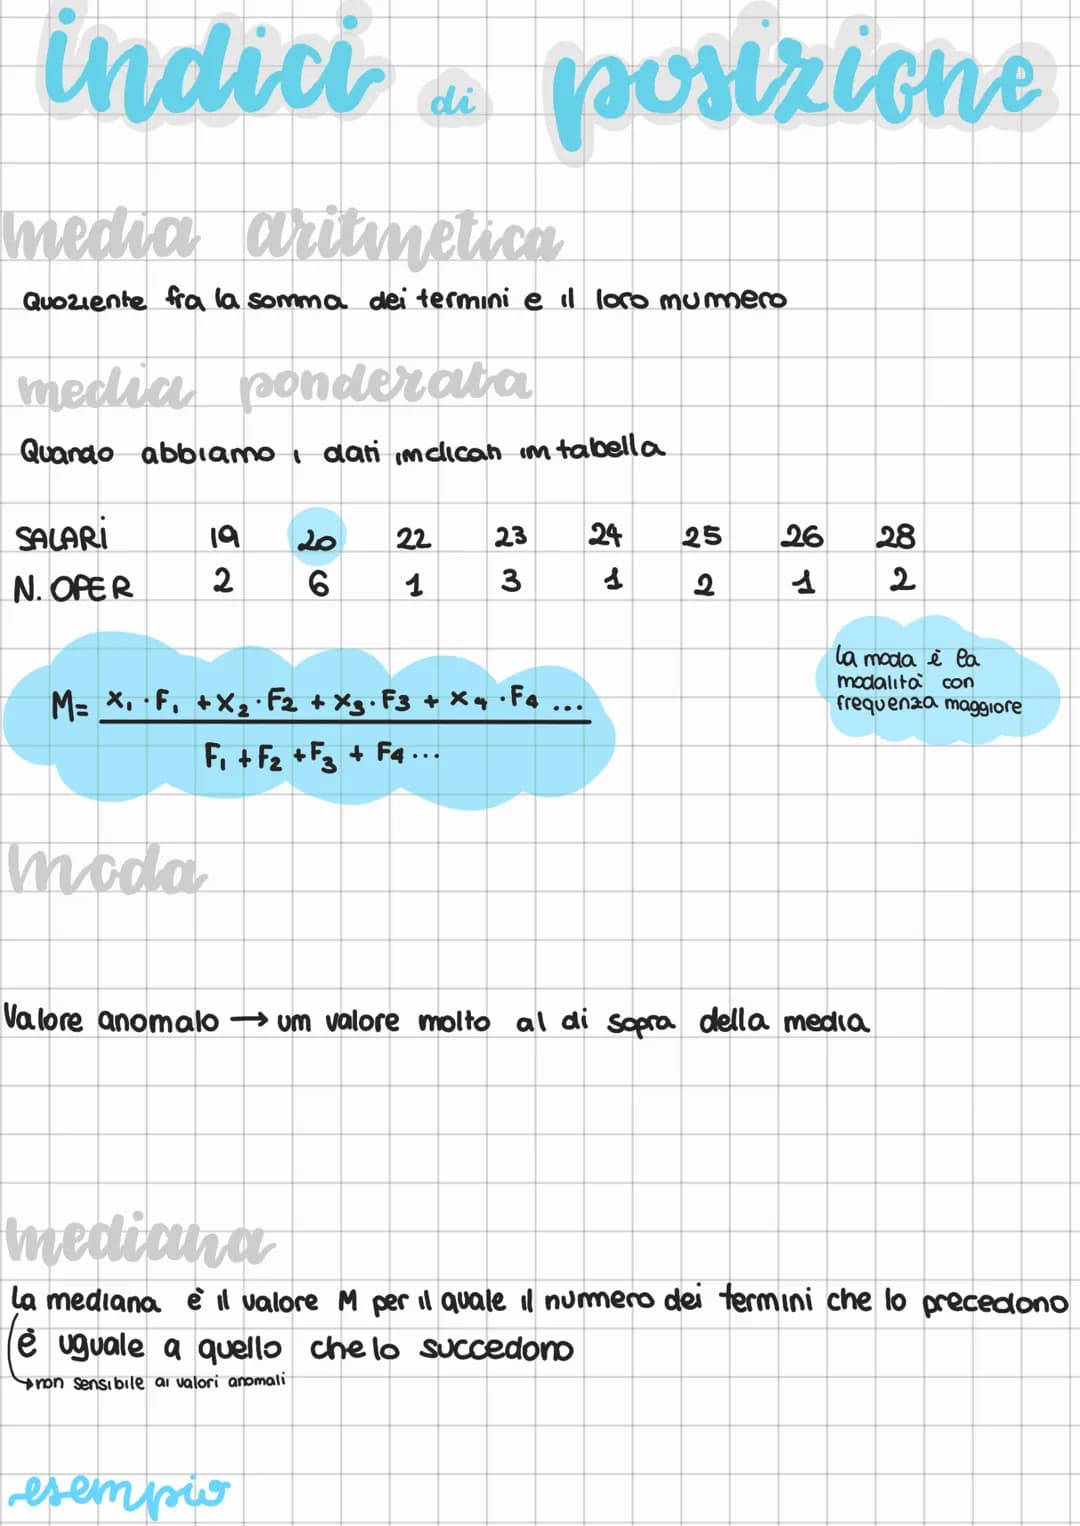 indici di posizione
media aritmetica
Quoziente fra la somma dei termini e il loro nummero
media ponderata
Quando abbiamo i dati indicati in tabella
SALARI 19 20 22 23 24 25 26 28
N. OPER 2 6 1 3 1 2 1 2
la moda è la
modalità con
frequenza maggiore
M= X₁ · F₁ + X₂ · F₂ + X₃ · F₃ + X₄ · F₄ ...
F₁ + F₂ + F₃ + F₄ ...
moda
Valore anomalo → un valore molto al di sopra della media
mediana
La mediana è il valore M per il quale il nummero dei termini che lo precedono
è uguale a quello che lo succedono
→ non sensibile ai valori anomali
esempio